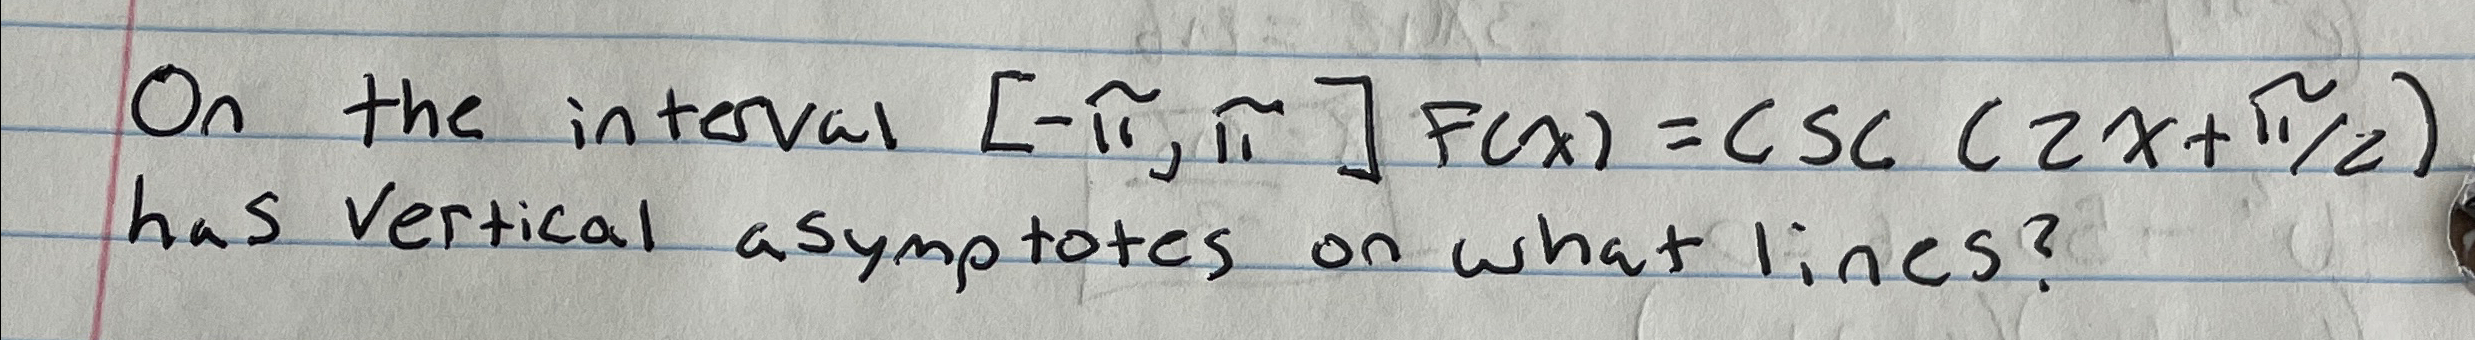 On the interval [-π, π] F(x) = CSC (2x+π/2)
has vertical asymptotes on what lines?